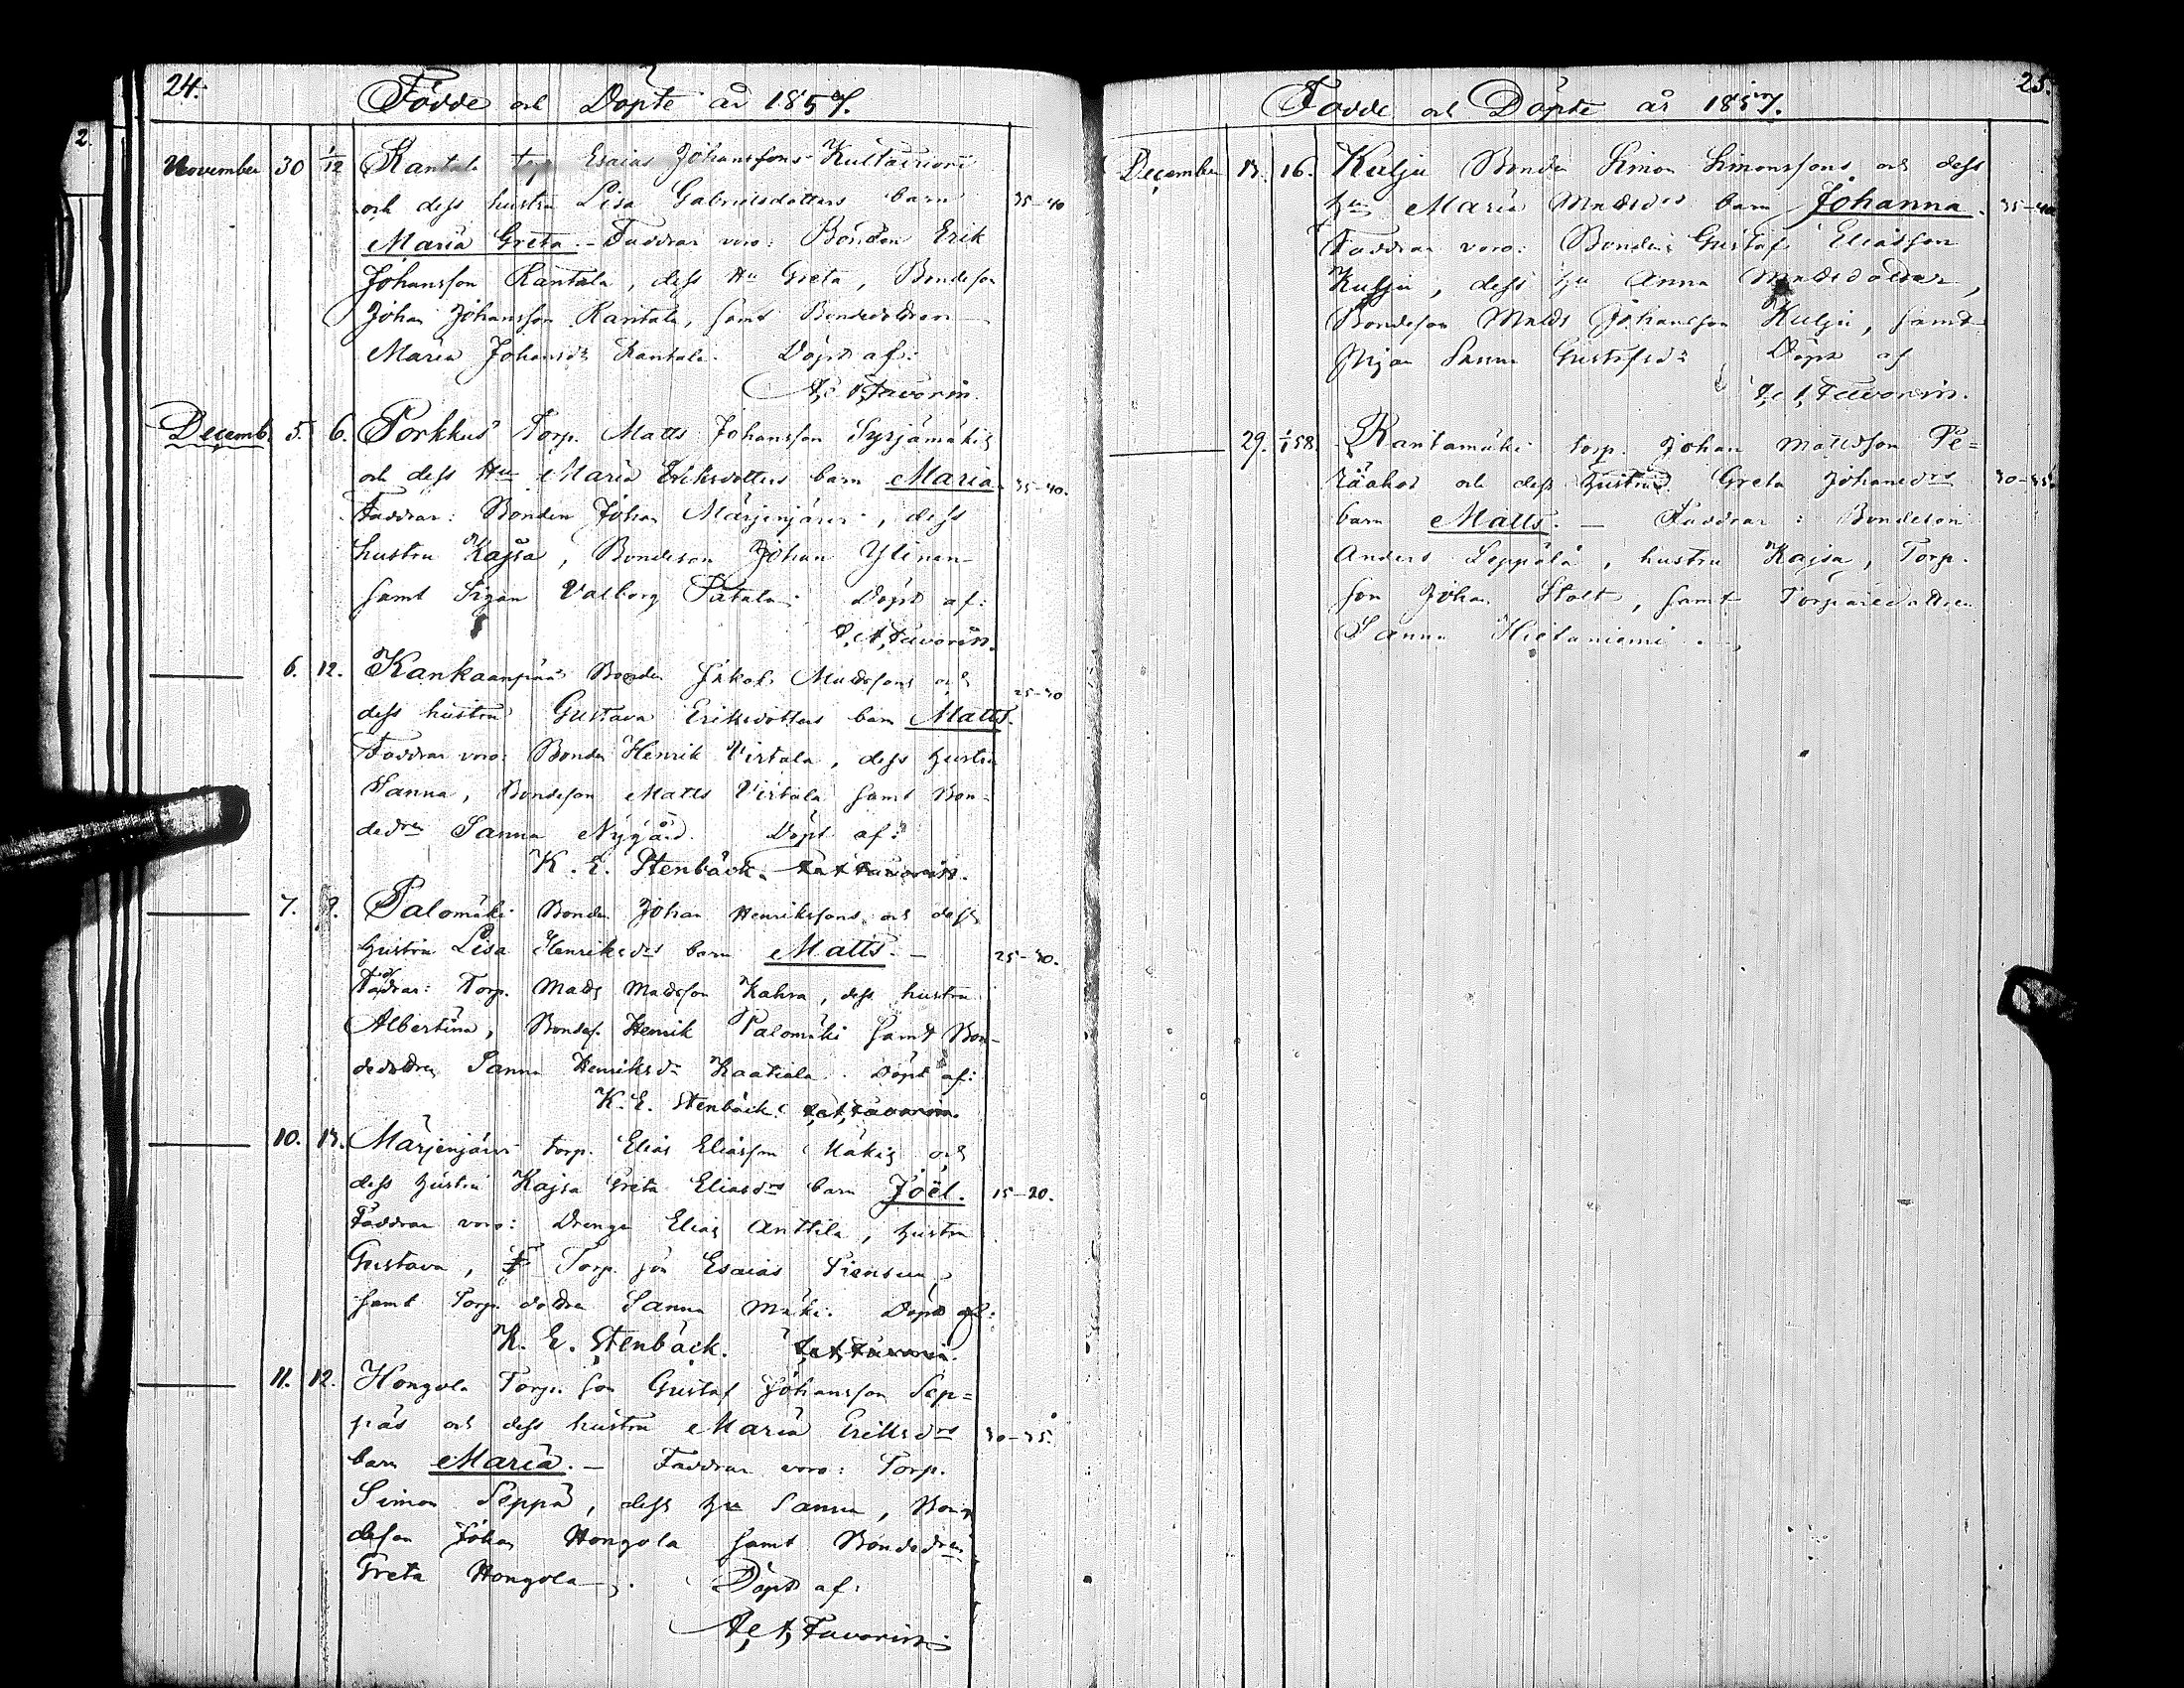 24.
Födde och Döpte år 1857.
November 30 1/12 Rantala torp Esaias Johanssons
och dess hustru Lisa Gabrielsdotters barn 35-40
Maria Greta. - Faddrar voro: Bonden Erik
Johansson Rantala, dess Hu Greta, Bondeson
Johan Johansson Rantala, samt Bondedottren
Maria Johansdr Rantala. Döpt af:
Favorin.
Decemb. 5. 6. Porkkus Torp. Matts Johansson Syrjämäkis
och dess Hu Maria Eriksdotters barn Maria. 35-40.
Faddrar: Bonden Johan Märjenjärvi, dess
hustru Kajsa, Bondeson Johan Ylinen
samt Pigan Valborg Patala. Döpt af:
Favorin.
6. 12. Kankaanpää Bonden Jakob Mattssons och 25-30
dess hustru Gustava Eriksdotters barn Matts.
Faddrar voro: Bonden Henrik Virtala, dess hustru
Sanna, Bondeson Matts Virtala samt Bon-
dedren Sanna Nygård. Döpt af:
K. E. Stenbäck.
7. 8. Palomäki Bonden Johan Henrikssons och dess
hustru Lisa Henriksdrs barn Matts. - 25-30.
Faddrar: Torp. Matts Mattsson Kahra, dess hustru
Albertina, Bondes. Henrik Palomäki samt Bon-
dedottren Sanna Henriksdr Kaatiala. Döpt af:
K. E. Stenbäck.
10. 13. Märjenjärvi torp. Elias Eliasson Mäkis och
dess hustru Kajsa Greta Eliasdrs barn Joël. 15-20.
Faddrar voro: Drengen Elias Anttila, hustru
Gustava, Torp. son Esaias
samt Torp. dottren Sanna Mäki. Döpt af:
K. E. Stenbäck.
11. 12. Hongola Torp. son Gustaf Johansson Sep=
päs och dess hustru Maria Eriksdrs 30-35.
barn Maria. - Faddrar voro: Torp.
Simon Seppä, dess Hu Sanna, Bon-
deson Johan Hongola samt Bondedren
Greta Hongola. Döpt af:
Favorin
25.
Födde och Döpte år 1857.
December 13. 16. Kulju Bonden Simon Simonssons och dess
Hu Maria Mattsdrs barn Johanna. 35-40
Faddrar voro: Bonden Gustaf Eliasson
Kulju, dess Hu Anna Mattsdotter,
Bondeson Matts Johansson Kulju, samt
Pigan Sanna Gustafsdr Döpt af
Favorin.
29. 1/1 58. Rantamäki torp. Johan Mattsson Pe=
räahos och dess hustru Greta Johansdrs 30-35.
barn Matts. - Faddrar: Bondeson
Anders Seppälä, hustru Kajsa, Torp.
son Johan Stolt, samt Torparedottren
Sanna Hietaniemi.